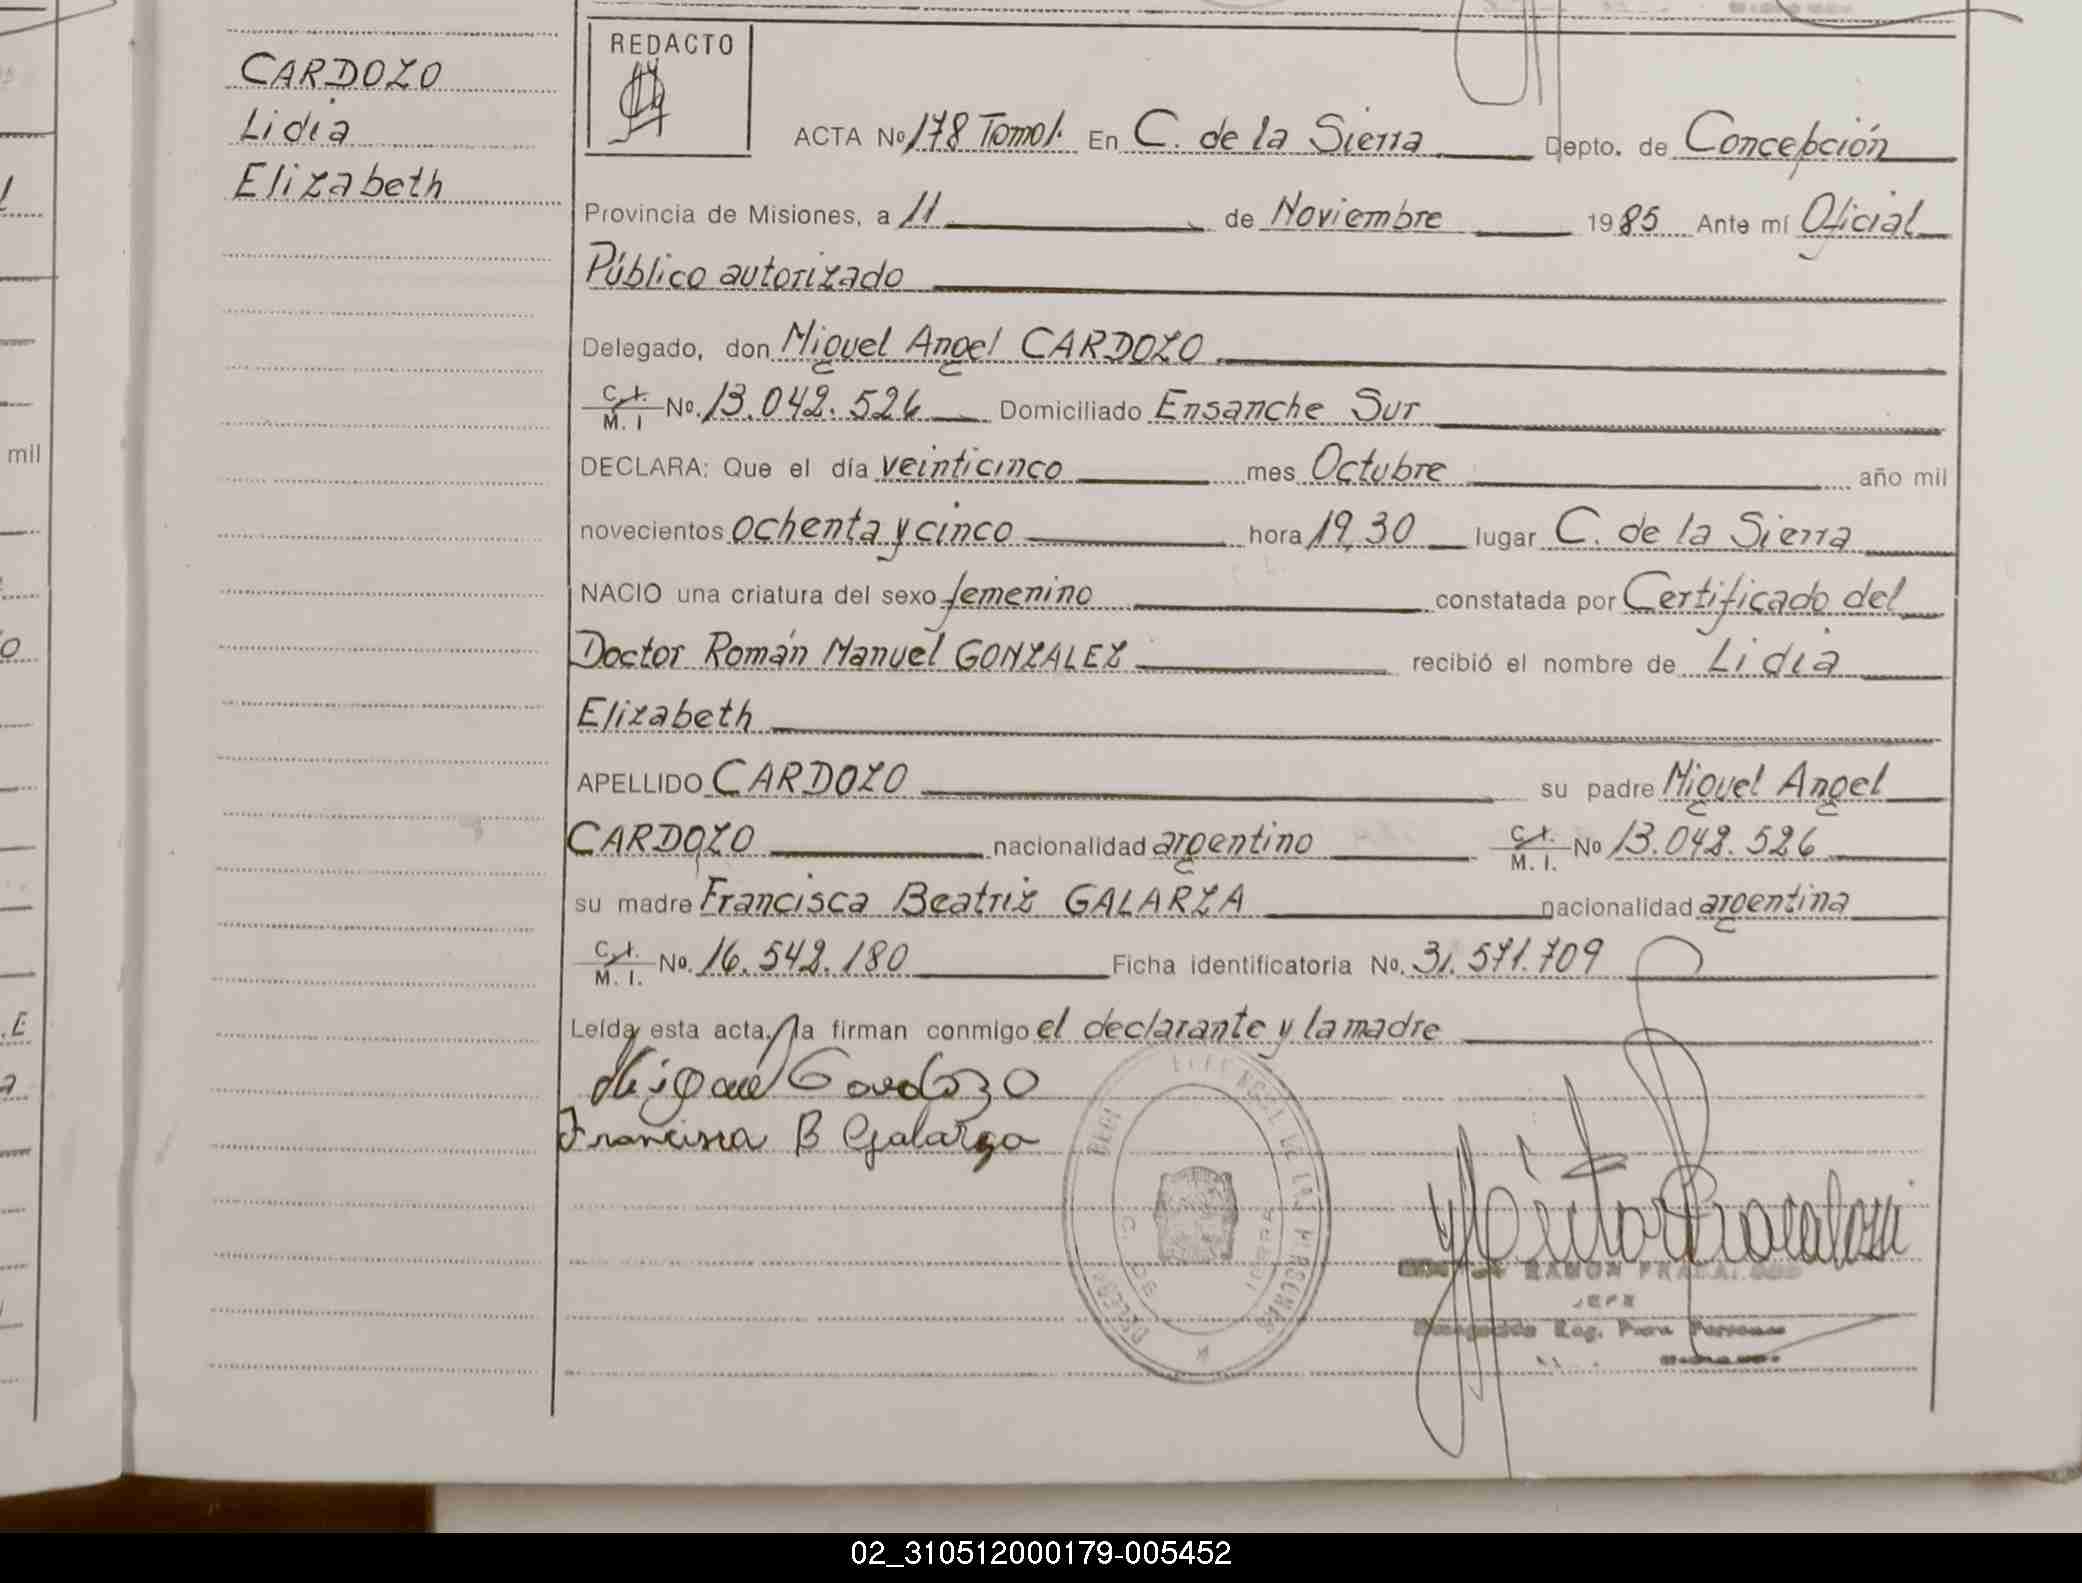 CARDOZO
Lidia
Elizabeth
REDACTO
ACTA Nº 178 Tomo 1. En C. de la Sierra Depto. de Concepción
Provincia de Misiones, a 11 de Noviembre 1985 Ante mí Oficial
Público autorizado
Delegado, don Miguel Angel CARDOZO
C. I. M. I Nº. 13.042.526 Domiciliado Ensanche Sur
DECLARA: Que el día veinticinco mes Octubre año mil
novecientos ochenta y cinco hora 19,30 lugar C. de la Sierra
NACIO una criatura del sexo femenino constatada por Certificado del
Doctor Román Manuel GONZALEZ recibió el nombre de Lidia
Elizabeth
APELLIDO CARDOZO su padre Miguel Angel
CARDOZO nacionalidad argentino C. I. M. I. Nº 13.042.526
su madre Francisca Beatriz GALARZA nacionalidad argentina
C. I. M. I. Nº. 16.542.180 Ficha identificatoria Nº. 31.571.709
Leída esta acta, la firman conmigo el declarante y la madre
Miguel Cardozo
Francisca B Galarza
DE LAS PERSONAS
C. DE
RAMON
JEFE
Reg.
mil
02_310512000179-005452